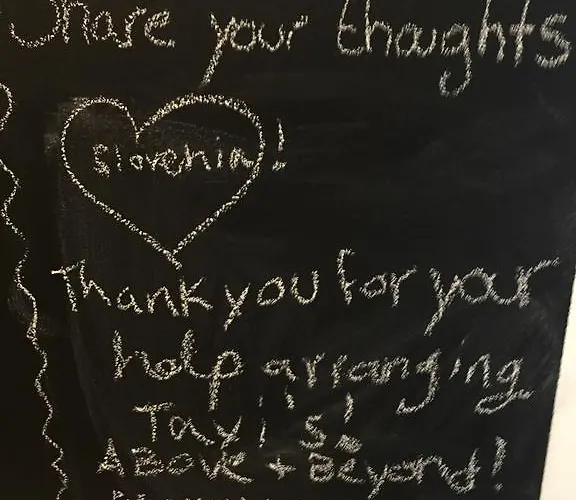 Share your thoughts
Slovenia!
Thank you for your
help arranging
Taxi's!
ABove + Beyond!